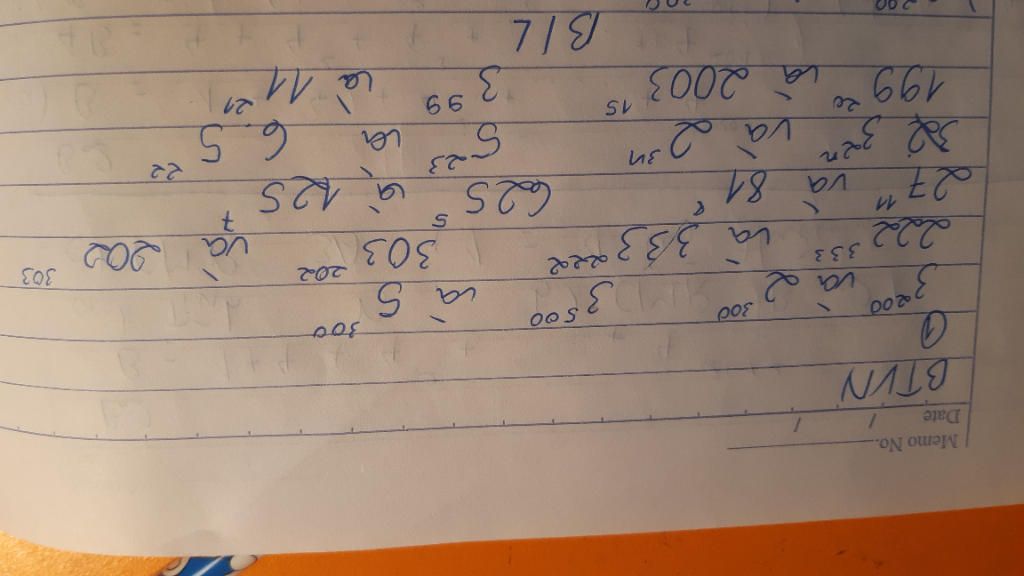 Memo No.
Date / /
BTVN
①
3²⁰⁰ và 2³⁰⁰ 3⁵⁰⁰ và 5³⁰⁰
222³³³ và 333²²² 303²⁰² và 202³⁰³
27¹¹ và 81⁸ 625⁵ và 125⁷
3²ⁿ và 2³ⁿ 5²³ và 6.5²²
199²⁰ và 2003¹⁵ 3⁹⁹ và 11²¹
B/L